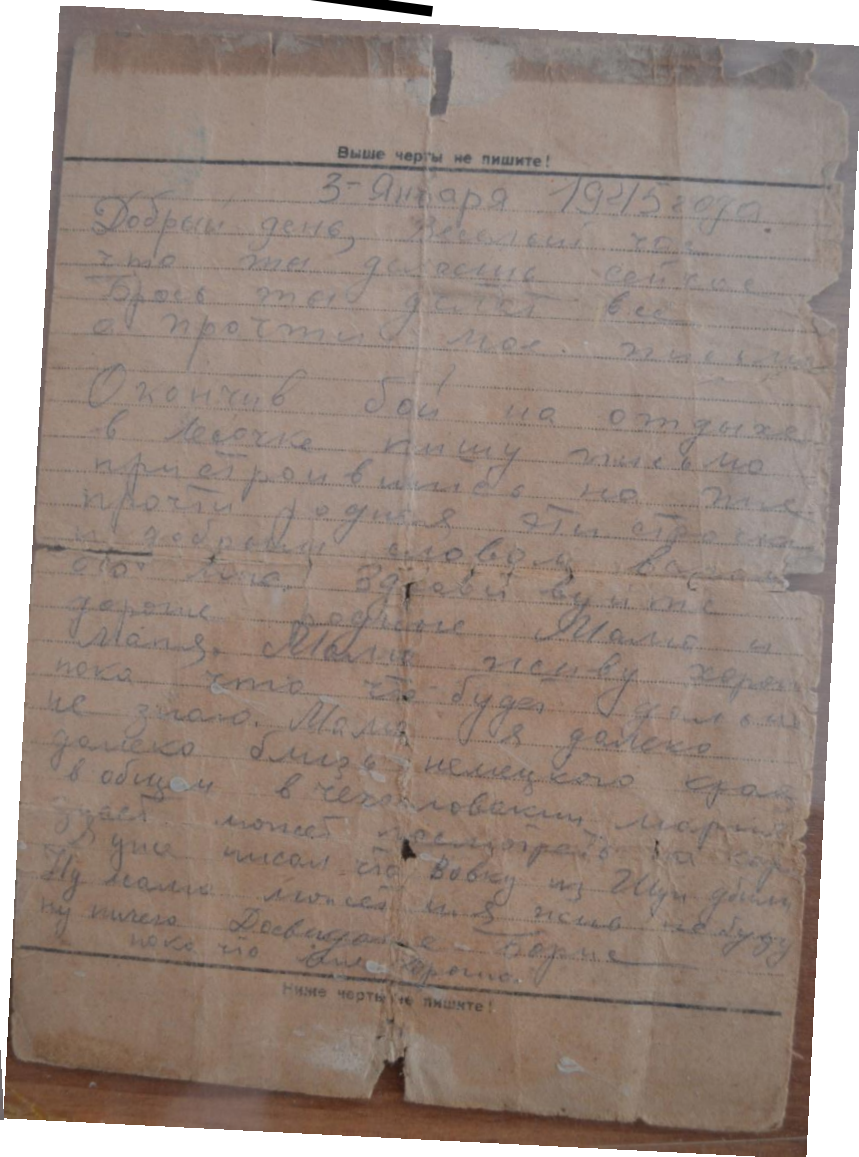 Выше черты не пишите!
3-Января 1945 года.
Добрый день, Веселый час
что ты делаешь сейчас
Брось ты делат все
а прочти мое письмо
Окончив бой на отдыхе
в лесочке пишу письмо
пристроившись на пне
прочти родная эти строчки
и добрым словом
Здравствуйте
дорогие родные Мама и
Маня. Мама живу хорошо
пока что, что будет дальше
не знаю. Мама я далеко
далеко близь немецкого края
в общем в чехословакии, Маруся
знает может посмотреть на карте
Я уже писал что Вовку из Шуи убили
Ну мама может и я жив не буду
ну ничего Досвидание Борис
пока что все хорошо.
Ниже черты не пишите!